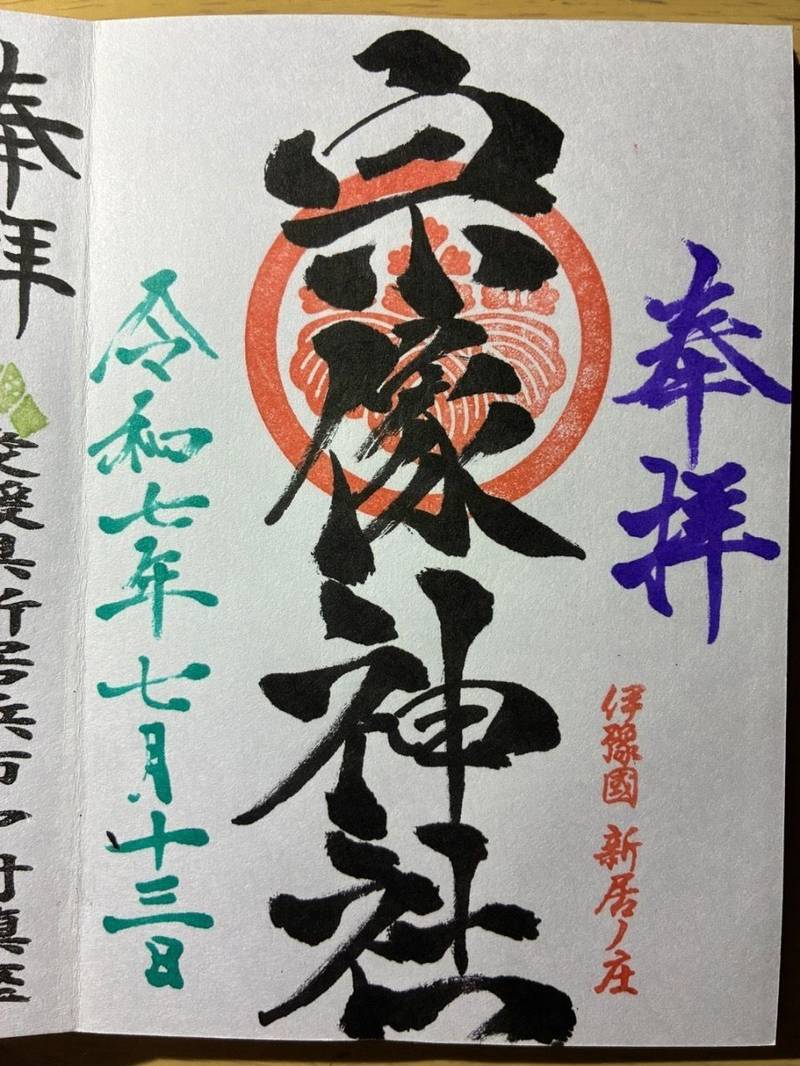 奉拝
伊豫國 新居ノ庄
宗像神社
令和七年七月十三日
奉拝
愛媛県新居浜市